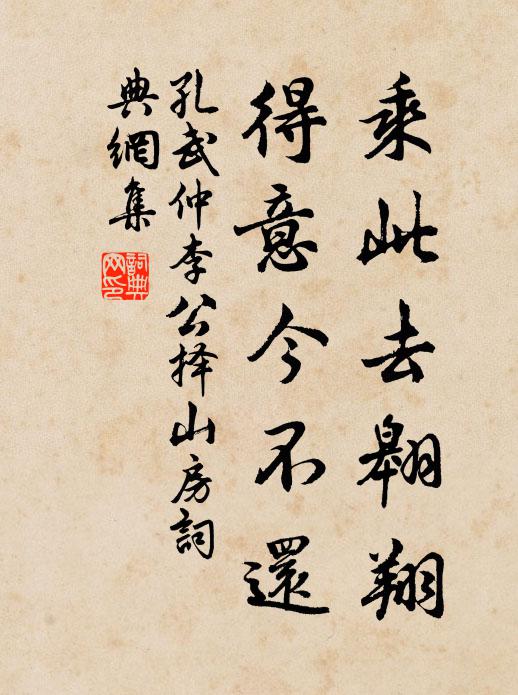 乘此去翱翔
得意今不還
孔武仲李公择山房詞
典網集
詞典
网印